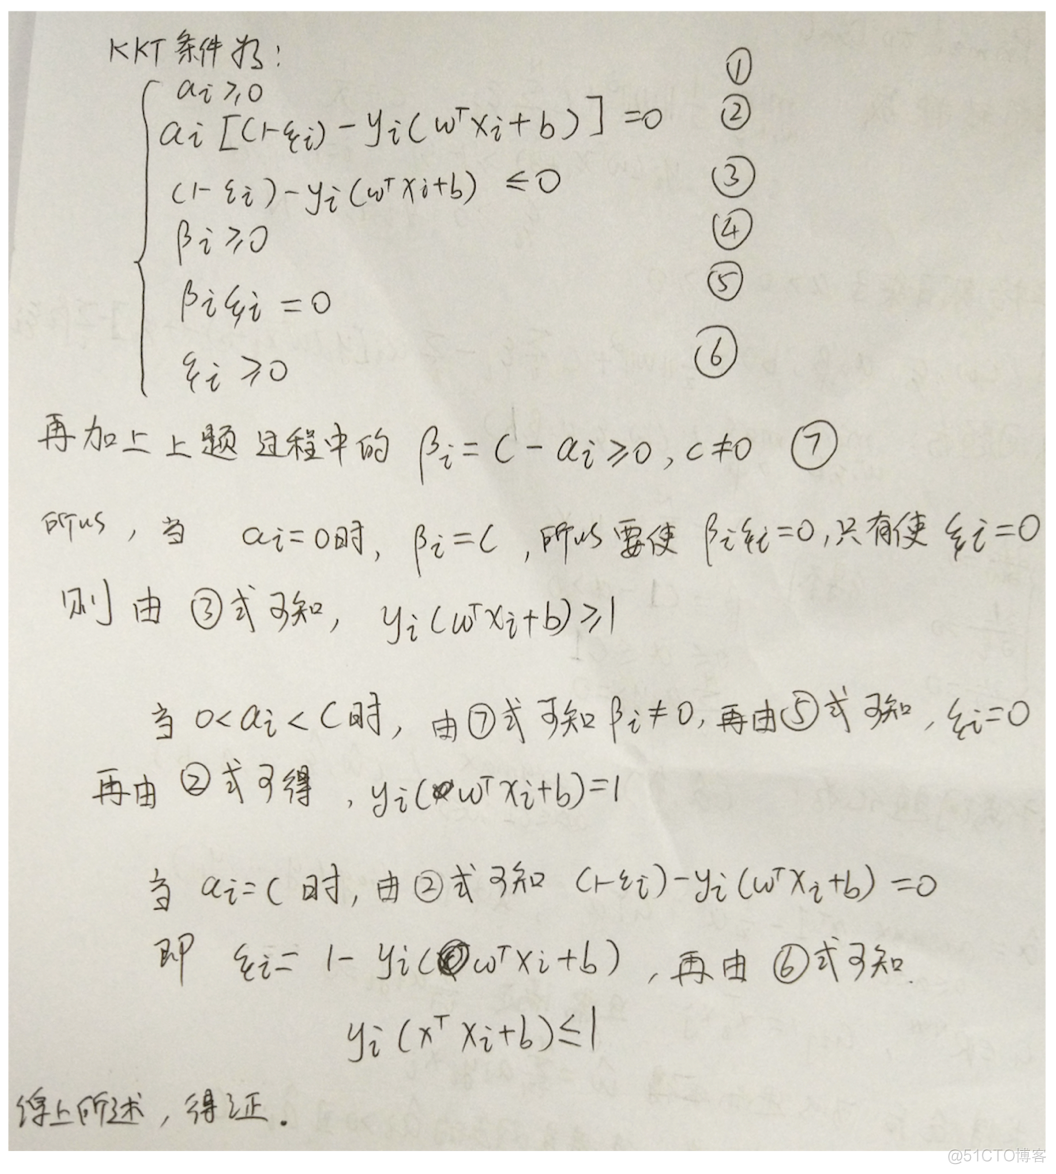 KKT 条件为:
αi ≥ 0 ①
αi [(1-ξi) - yi(ωᵀxi+b)] = 0 ②
(1-ξi) - yi(ωᵀxi+b) ≤ 0 ③
βi ≥ 0 ④
βiξi = 0 ⑤
ξi ≥ 0 ⑥
再加上上题过程中的 βi = C - αi ≥ 0, C ≠ 0 ⑦
所以, 当 αi = 0时, βi = C, 所以要使 βiξi = 0, 只有使 ξi = 0
则由 ③式可知, yi(ωᵀxi+b) ≥ 1
当 0 < αi < C时, 由⑦式可知 βi ≠ 0, 再由⑤式可知, ξi = 0
再由 ②式可得, yi(ωᵀxi+b) = 1
当 αi = C 时, 由②式可知 (1-ξi) - yi(ωᵀxi+b) = 0
即 ξi = 1 - yi(ωᵀxi+b), 再由 ⑥式可知.
yi(xᵀxi+b) ≤ 1
综上所述, 得证.
@51CTO博客